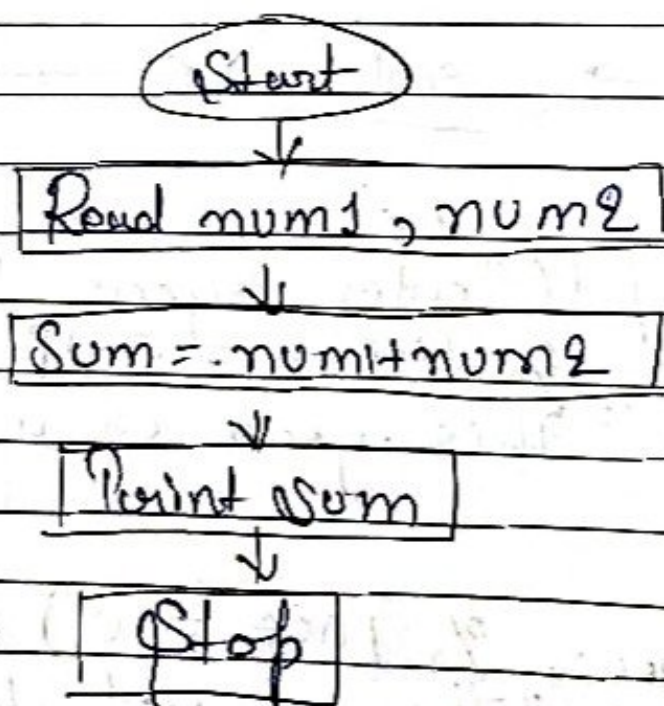 Start
Read num1, num2
Sum = num1+num2
Print Sum
Stop